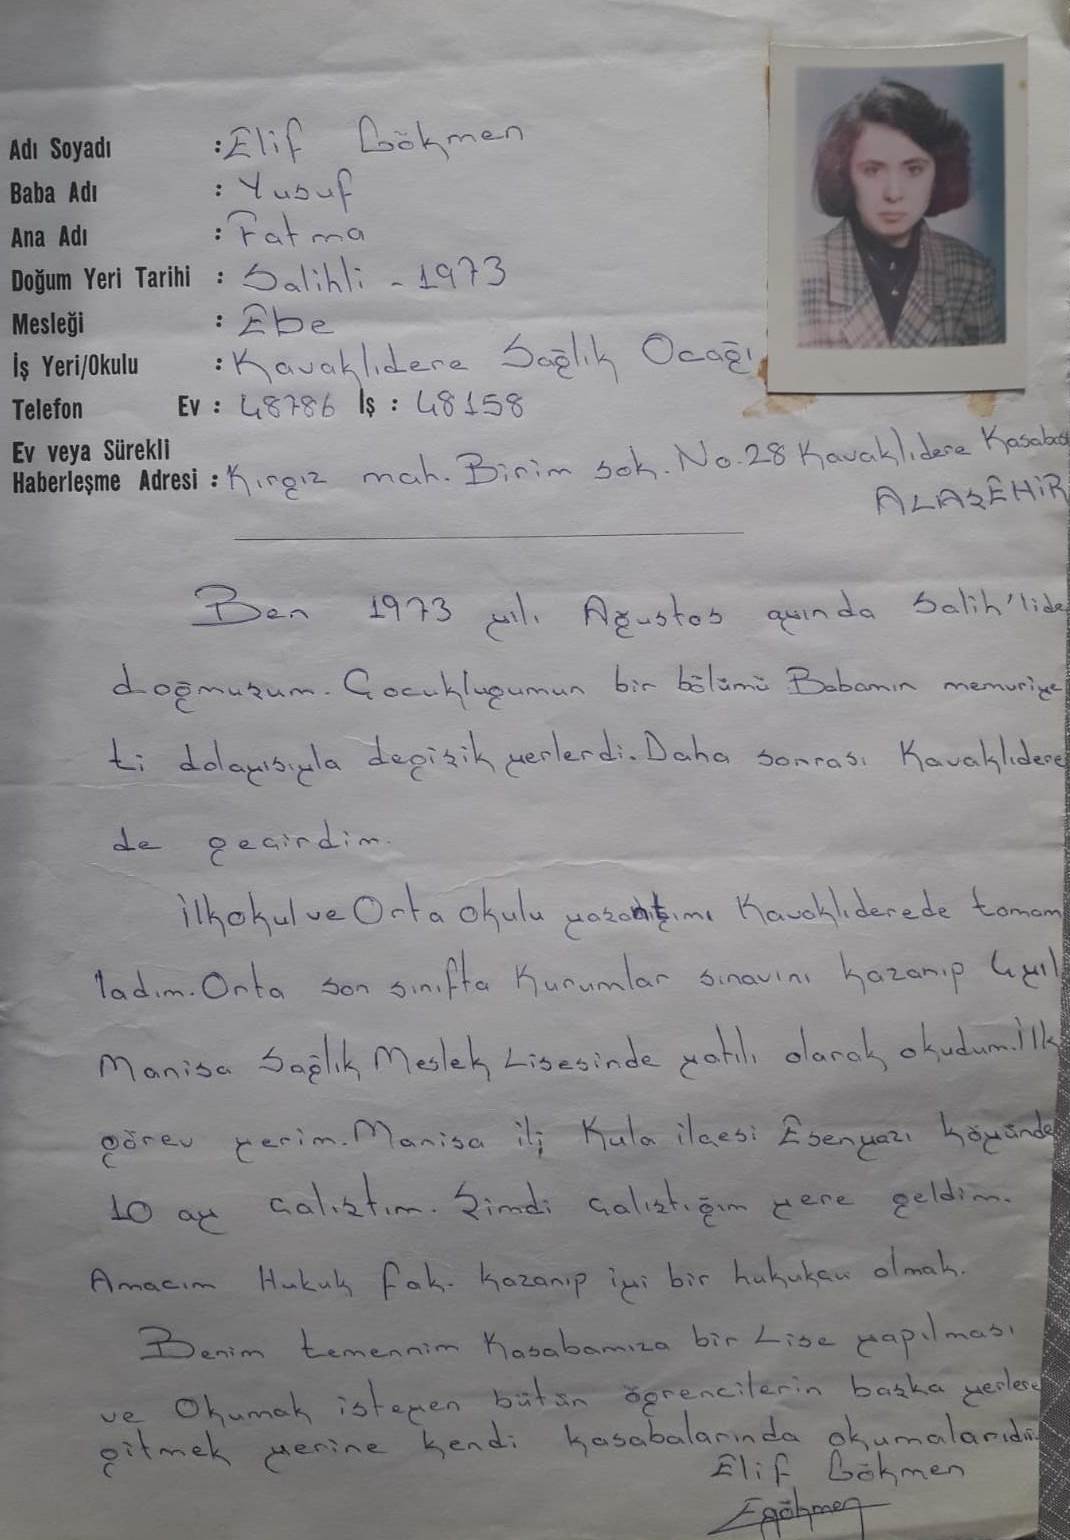 Adı Soyadı : Elif Gökmen
Baba Adı : Yusuf
Ana Adı : Fatma
Doğum Yeri Tarihi : Salihli - 1973
Mesleği : Ebe
İş Yeri/Okulu : Kavaklıdere Sağlık Ocağı
Telefon Ev : 48786 İş : 48158
Ev veya Sürekli
Haberleşme Adresi : Kırgız mah. Birim sok. No.28 Kavaklıdere Kasabası
ALAŞEHİR
Ben 1973 yılı Ağustos ayında Salih'lide
doğmuşum. Çocuklugumun bir bölümü Babamın memuriye
ti dolayısıyla değişik yerlerdi. Daha sonrası Kavaklıdere
de geçirdim.
İlkokul ve Orta okulu Kavaklıderede tamam
ladım. Orta son sınıfta Kurumlar sınavını kazanıp 4 yıl
Manisa Sağlık Meslek Lisesinde yatılı olarak okudum. İlk
görev yerim. Manisa ili Kula ilçesi Esenyazı köyünde
10 ay çalıştım. Şimdi çalıştığım yere geldim.
Amacım Hukuk fak. kazanıp iyi bir hukukçu olmak.
Benim temennim Kasabamıza bir Lise yapılması
ve Okumak isteyen bütün öğrencilerin başka yerlere
gitmek yerine kendi kasabalarında okumalarıdır.
Elif Gökmen
EGökmen